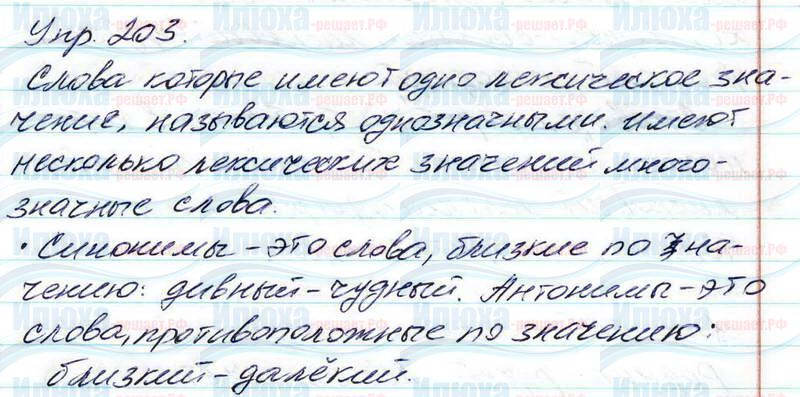 Упр. 203.
Слова которые имеют одно лексическое зна-
чение, называются однозначными. Имеют
несколько лексических значений много-
значные слова.
• Синонимы - это слова, близкие по зна-
чению: дивный - чудный. Антонимы - это
слова, противоположные по значению:
близкий - далёкий.